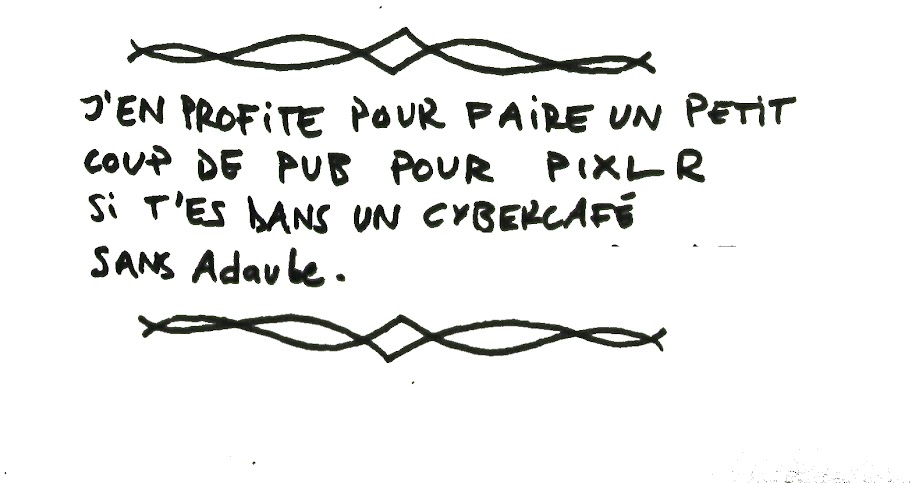 J'EN PROFiTE POUR FAiRE UN PETiT
COUP DE PUB POUR PIXLR
Si T'ES DANS UN CYBERCAFÉ
SANS Adaube.